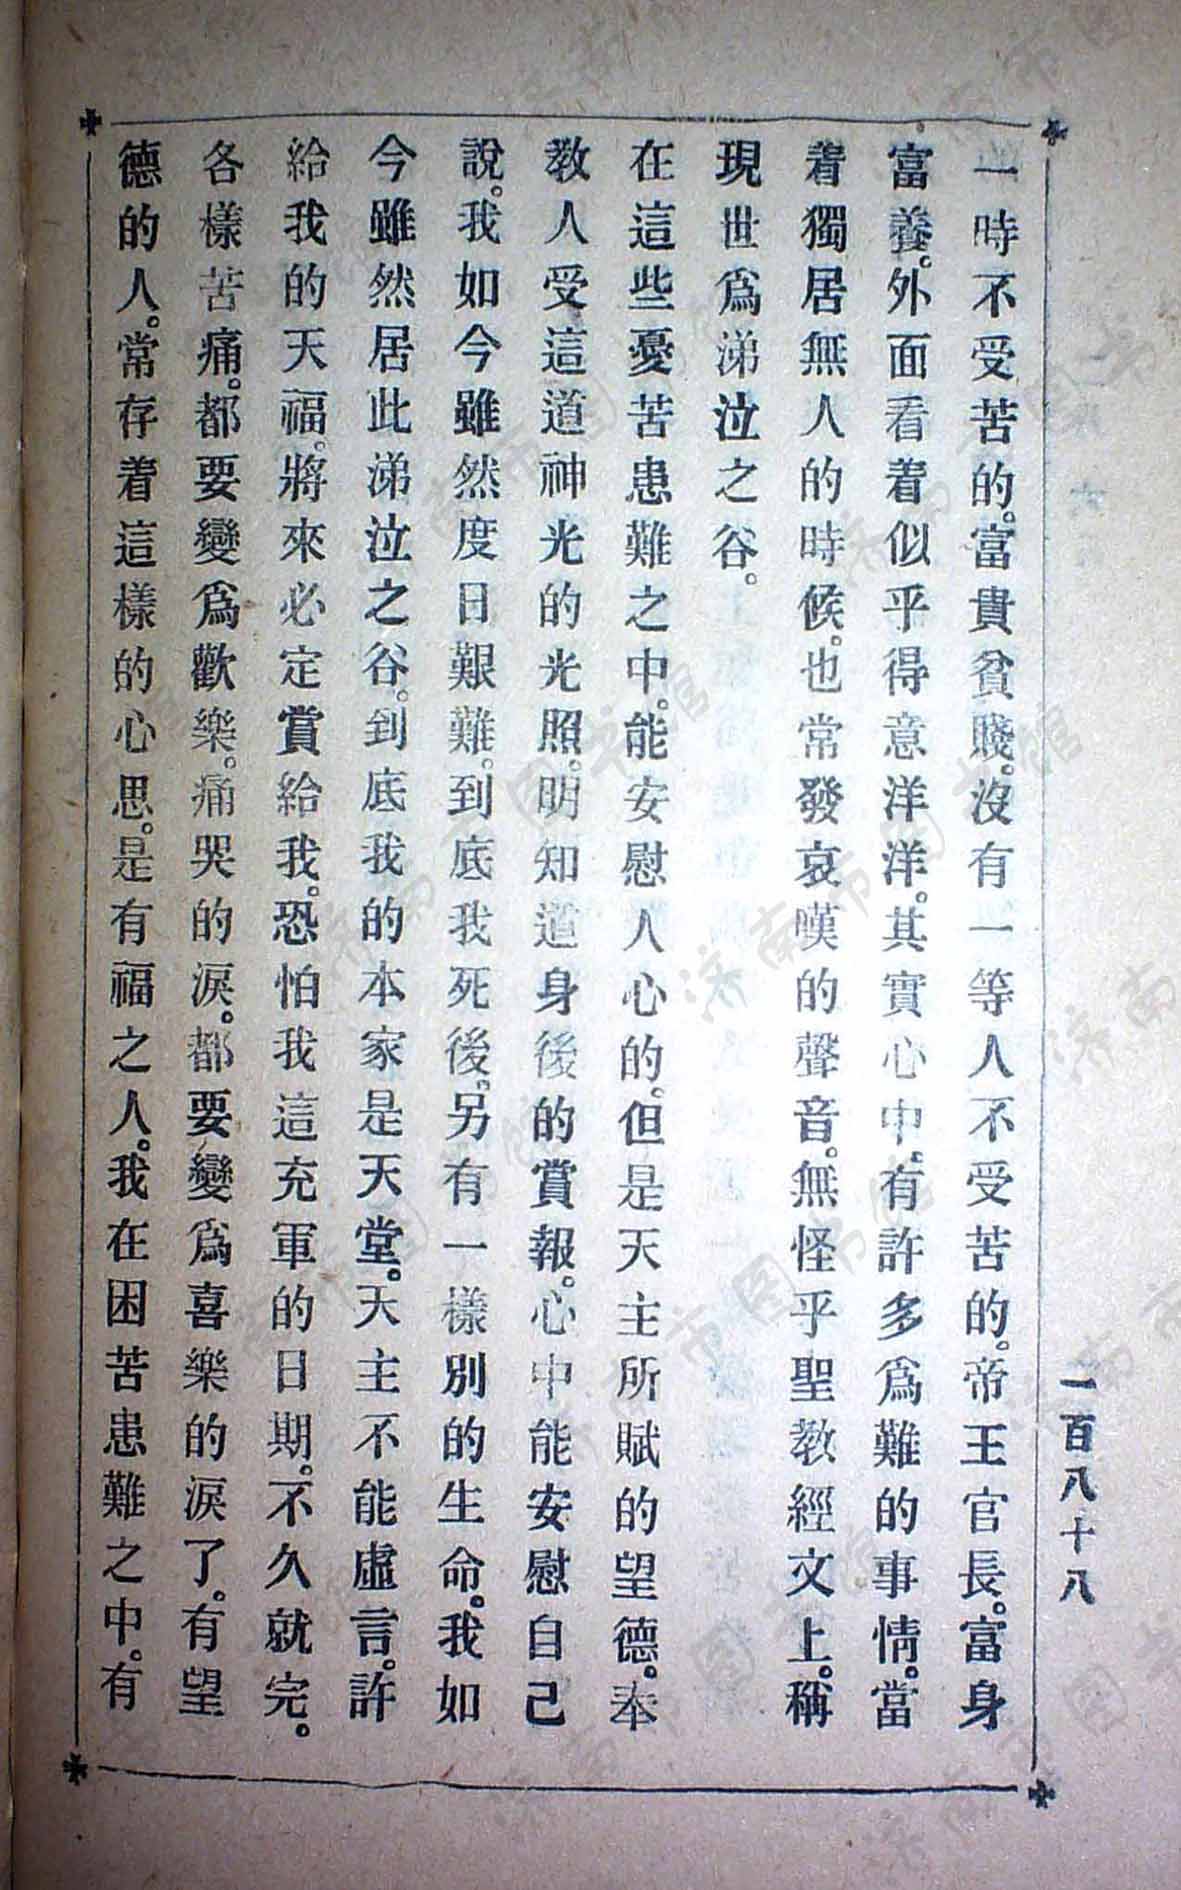 一百八十八
一時不受苦的。富貴貧賤。沒有一等人不受苦的。帝王官長。富身
富養。外面看着似乎得意洋洋。其實心中。有許多爲難的事情。當
着獨居無人的時候。也常發哀嘆的聲音。無怪乎聖教經文上。稱
現世爲涕泣之谷。
在這些憂苦患難之中。能安慰人心的。但是天主所賦的望德。奉
教人受這道神光的光照。明知道身後的賞報。心中能安慰自己
說。我如今雖然度日艱難。到底我死後。另有一樣別的生命。我如
今雖然居此涕泣之谷。到底我的本家是天堂。天主不能虛言。許
給我的天福。將來必定賞給我。恐怕我這充軍的日期。不久就完。
各樣苦痛。都要變爲歡樂。痛哭的淚。都要變爲喜樂的淚了。有望
德的人。常存着這樣的心思。是有福之人。我在困苦患難之中。有
济南市图书馆